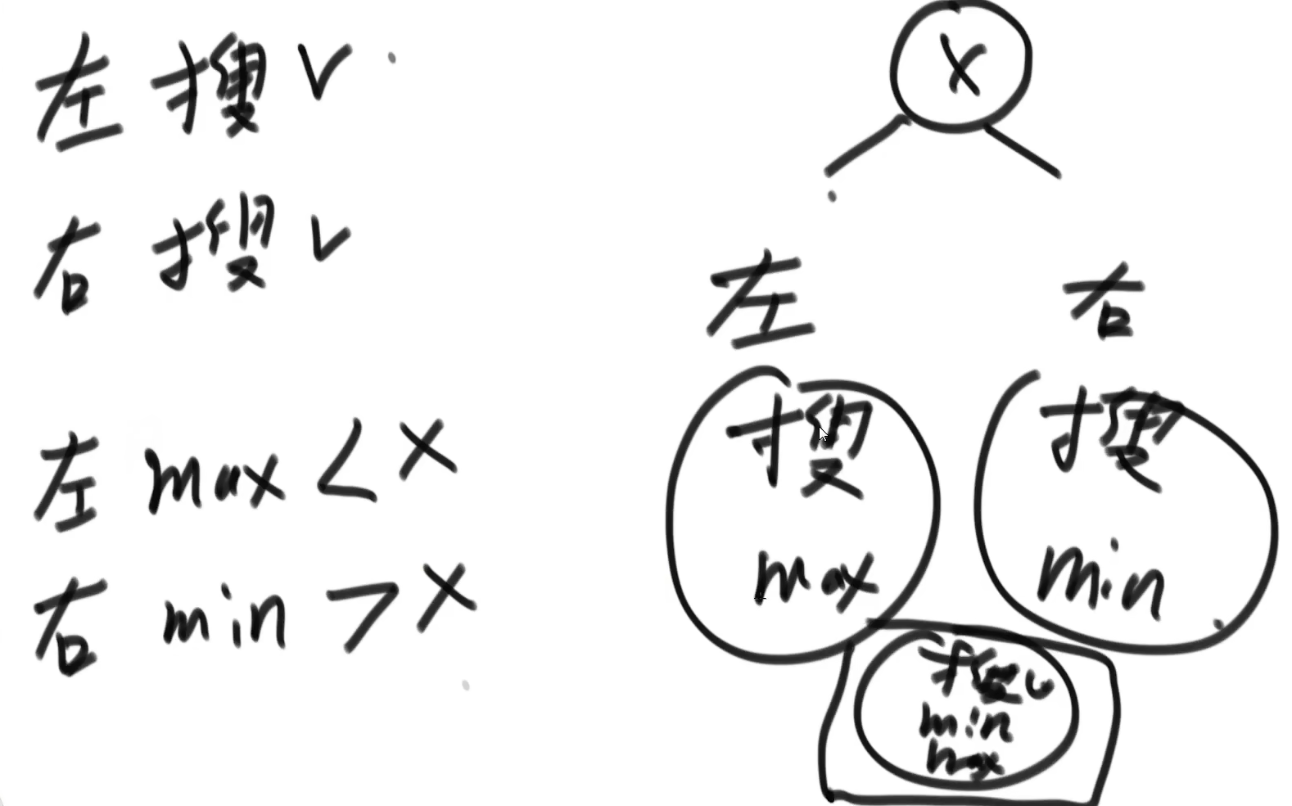 左 搜 √
右 搜 √
左 max < x
右 min > x
x
左 右
搜 搜
max min
搜 √
min
max